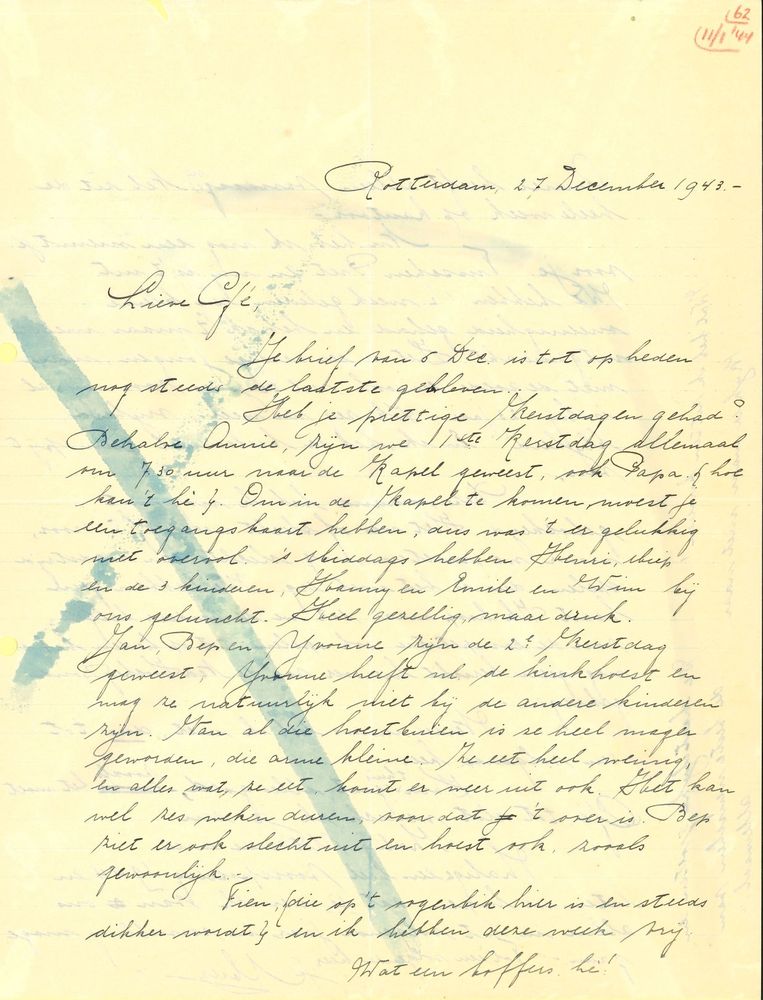 62
11/1 '44
Rotterdam, 27 December 1943.-
Lieve Cfé,
Je brief van 5 Dec. is tot op heden
nog steeds de laatste gebleven.
Heb je prettige Kerstdagen gehad?
Behalve Annie, zijn we 1ste Kerstdag allemaal
om 7.30 uur naar de Kapel geweest, ook Papa. { hoe
kan 't hè }. Om in de Kapel te komen moest je
een toegangskaart hebben, dus was 't er gelukkig
niet overvol. 's Middags hebben Henri, Miep
en de 3 kinderen, Hanny en Emile en Wim bij
ons geluncht. Heel gezellig, maar druk.
Jan, Bep en Yvonne zijn de 2e Kerstdag
geweest, Yvonne heeft nl. de kinkhoest en
mag ze natuurlijk niet bij de andere kinderen
zijn. Van al die hoestbuien is ze heel mager
geworden, die arme kleine. Ze eet heel weinig,
en alles wat ze eet, komt er weer uit ook. Het kan
wel zes weken duren, voor dat 't over is. Bep
ziet er ook slecht uit en hoest ook, zooals
gewoonlijk.-
Fien, {die op 't oogenblik hier is en steeds
dikker wordt} en ik hebben deze week vrij.
Wat een boffers, hè!